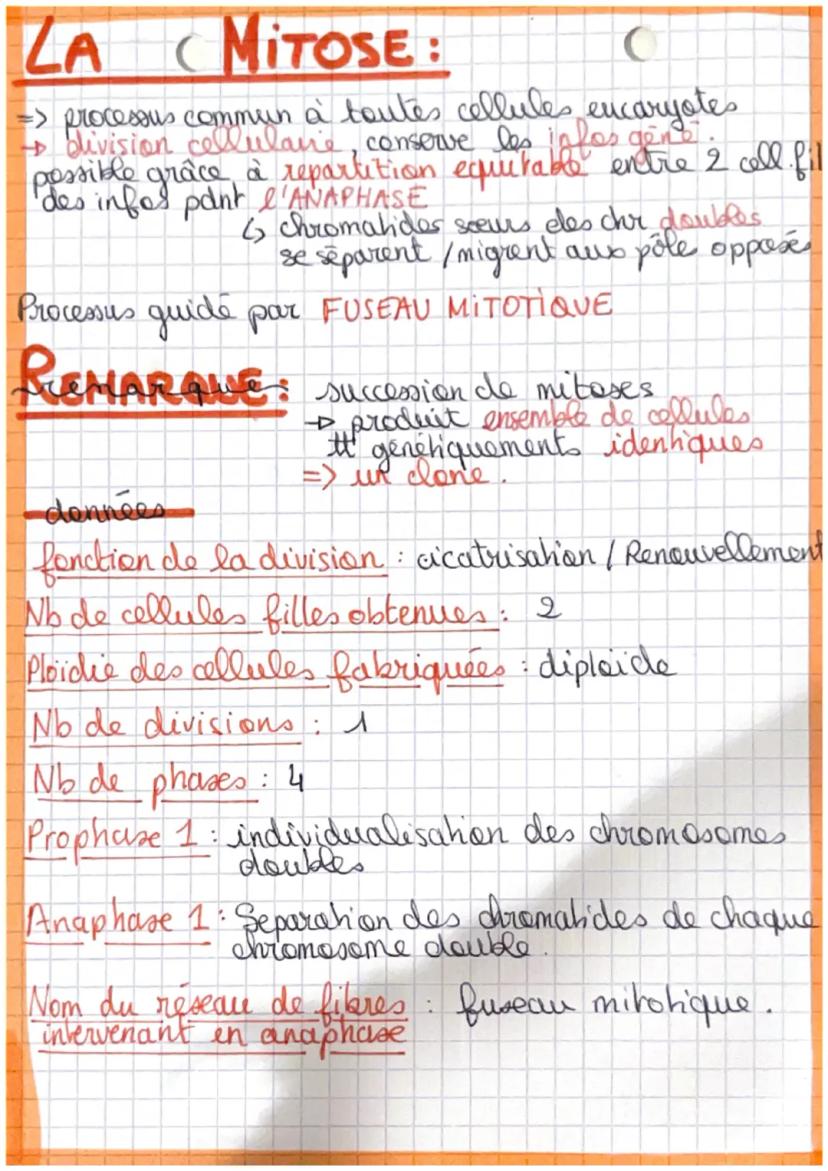 LA MITOSE :
=> processus commun à toutes cellules eucaryotes
→ division cellulaire, conserve les infos géné.
possible grâce à repartition equitable entre 2 cell. fil
des infos pdnt l'ANAPHASE
↳ chromatides sœurs des chr doubles
se séparent / migrent aux pôle opposés
Processus guidé par FUSEAU MITOTIQUE
REMARQUE : succession de mitoses
→ produit ensemble de cellules
génétiquements identiques
=> un clone.
données
fonction de la division : cicatrisation / Renouvellement
Nb de cellules filles obtenues : 2
Ploidie des cellules fabriquées : diploide
Nb de divisions : 1
Nb de phases : 4
Prophase 1 : individualisation des chromosomes
doubles
Anaphase 1 : Separation des chromatides de chaque
chromosome double.
Nom du réseau de fibres : fuseau mitotique.
intervenant en anaphase